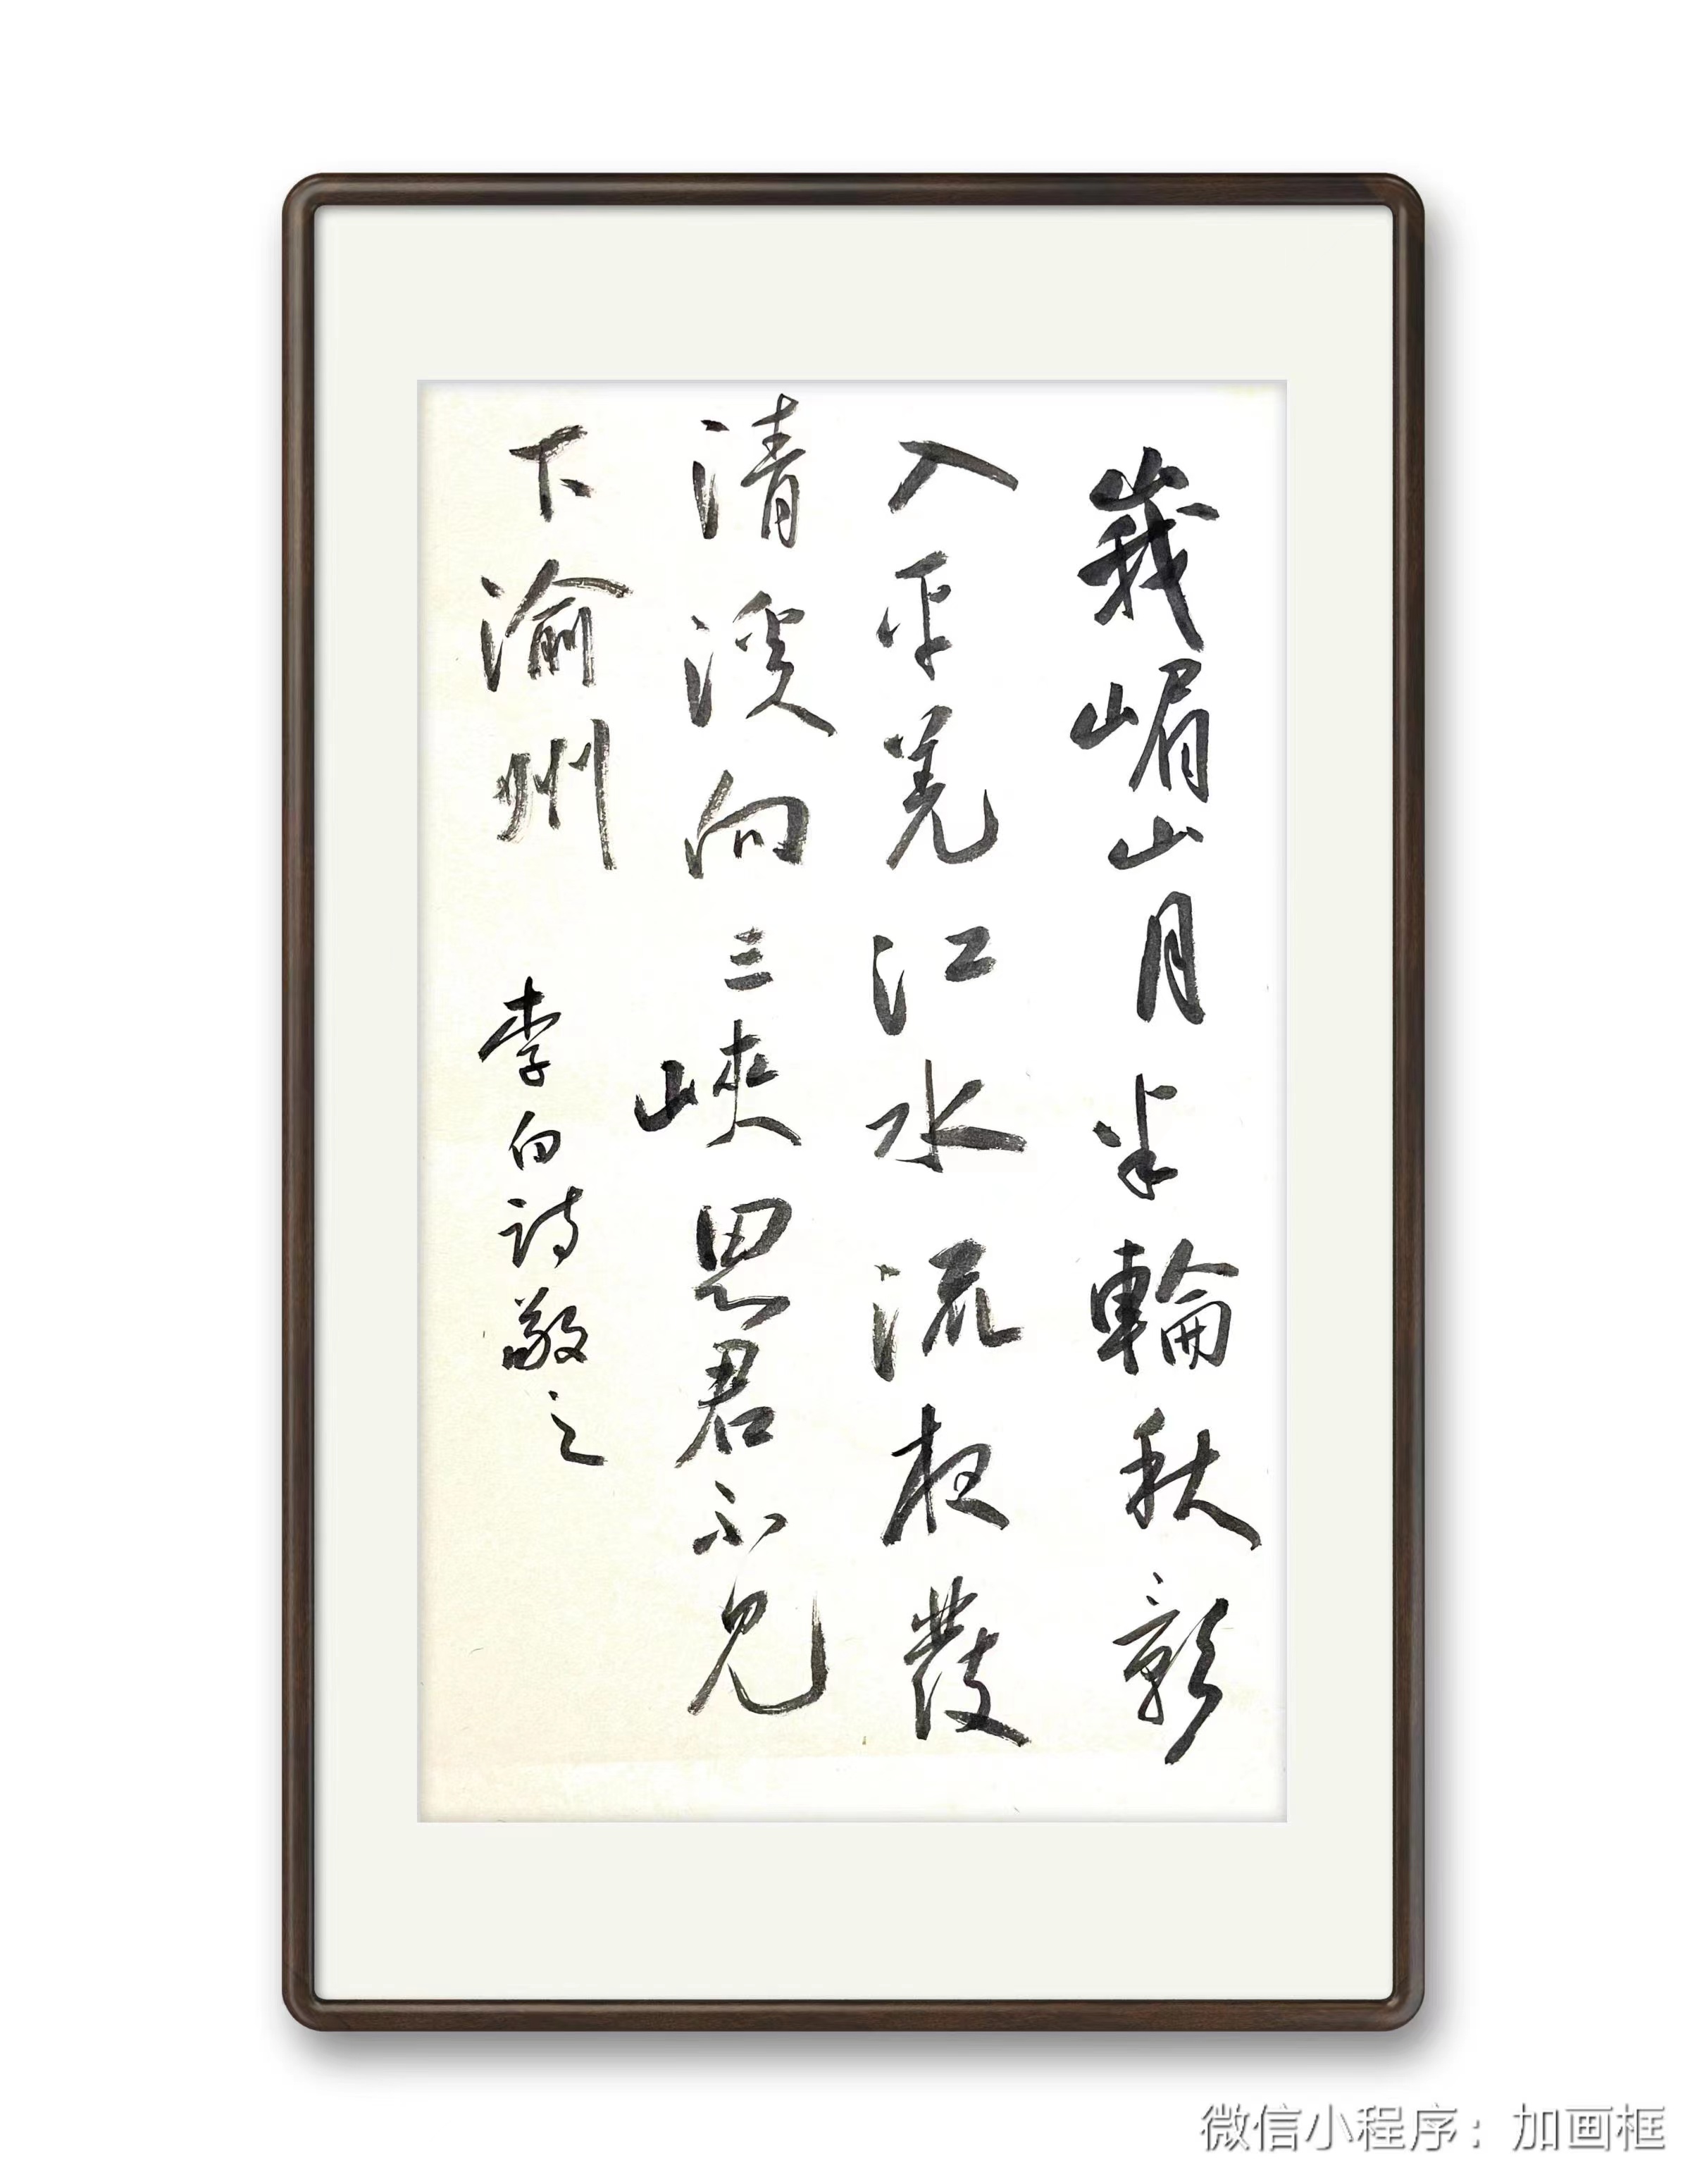 峩嵋山月半輪秋影
入平羌江水流夜發
清溪向三峽思君不見
下渝州 李白詩敬之
微信小程序：加画框